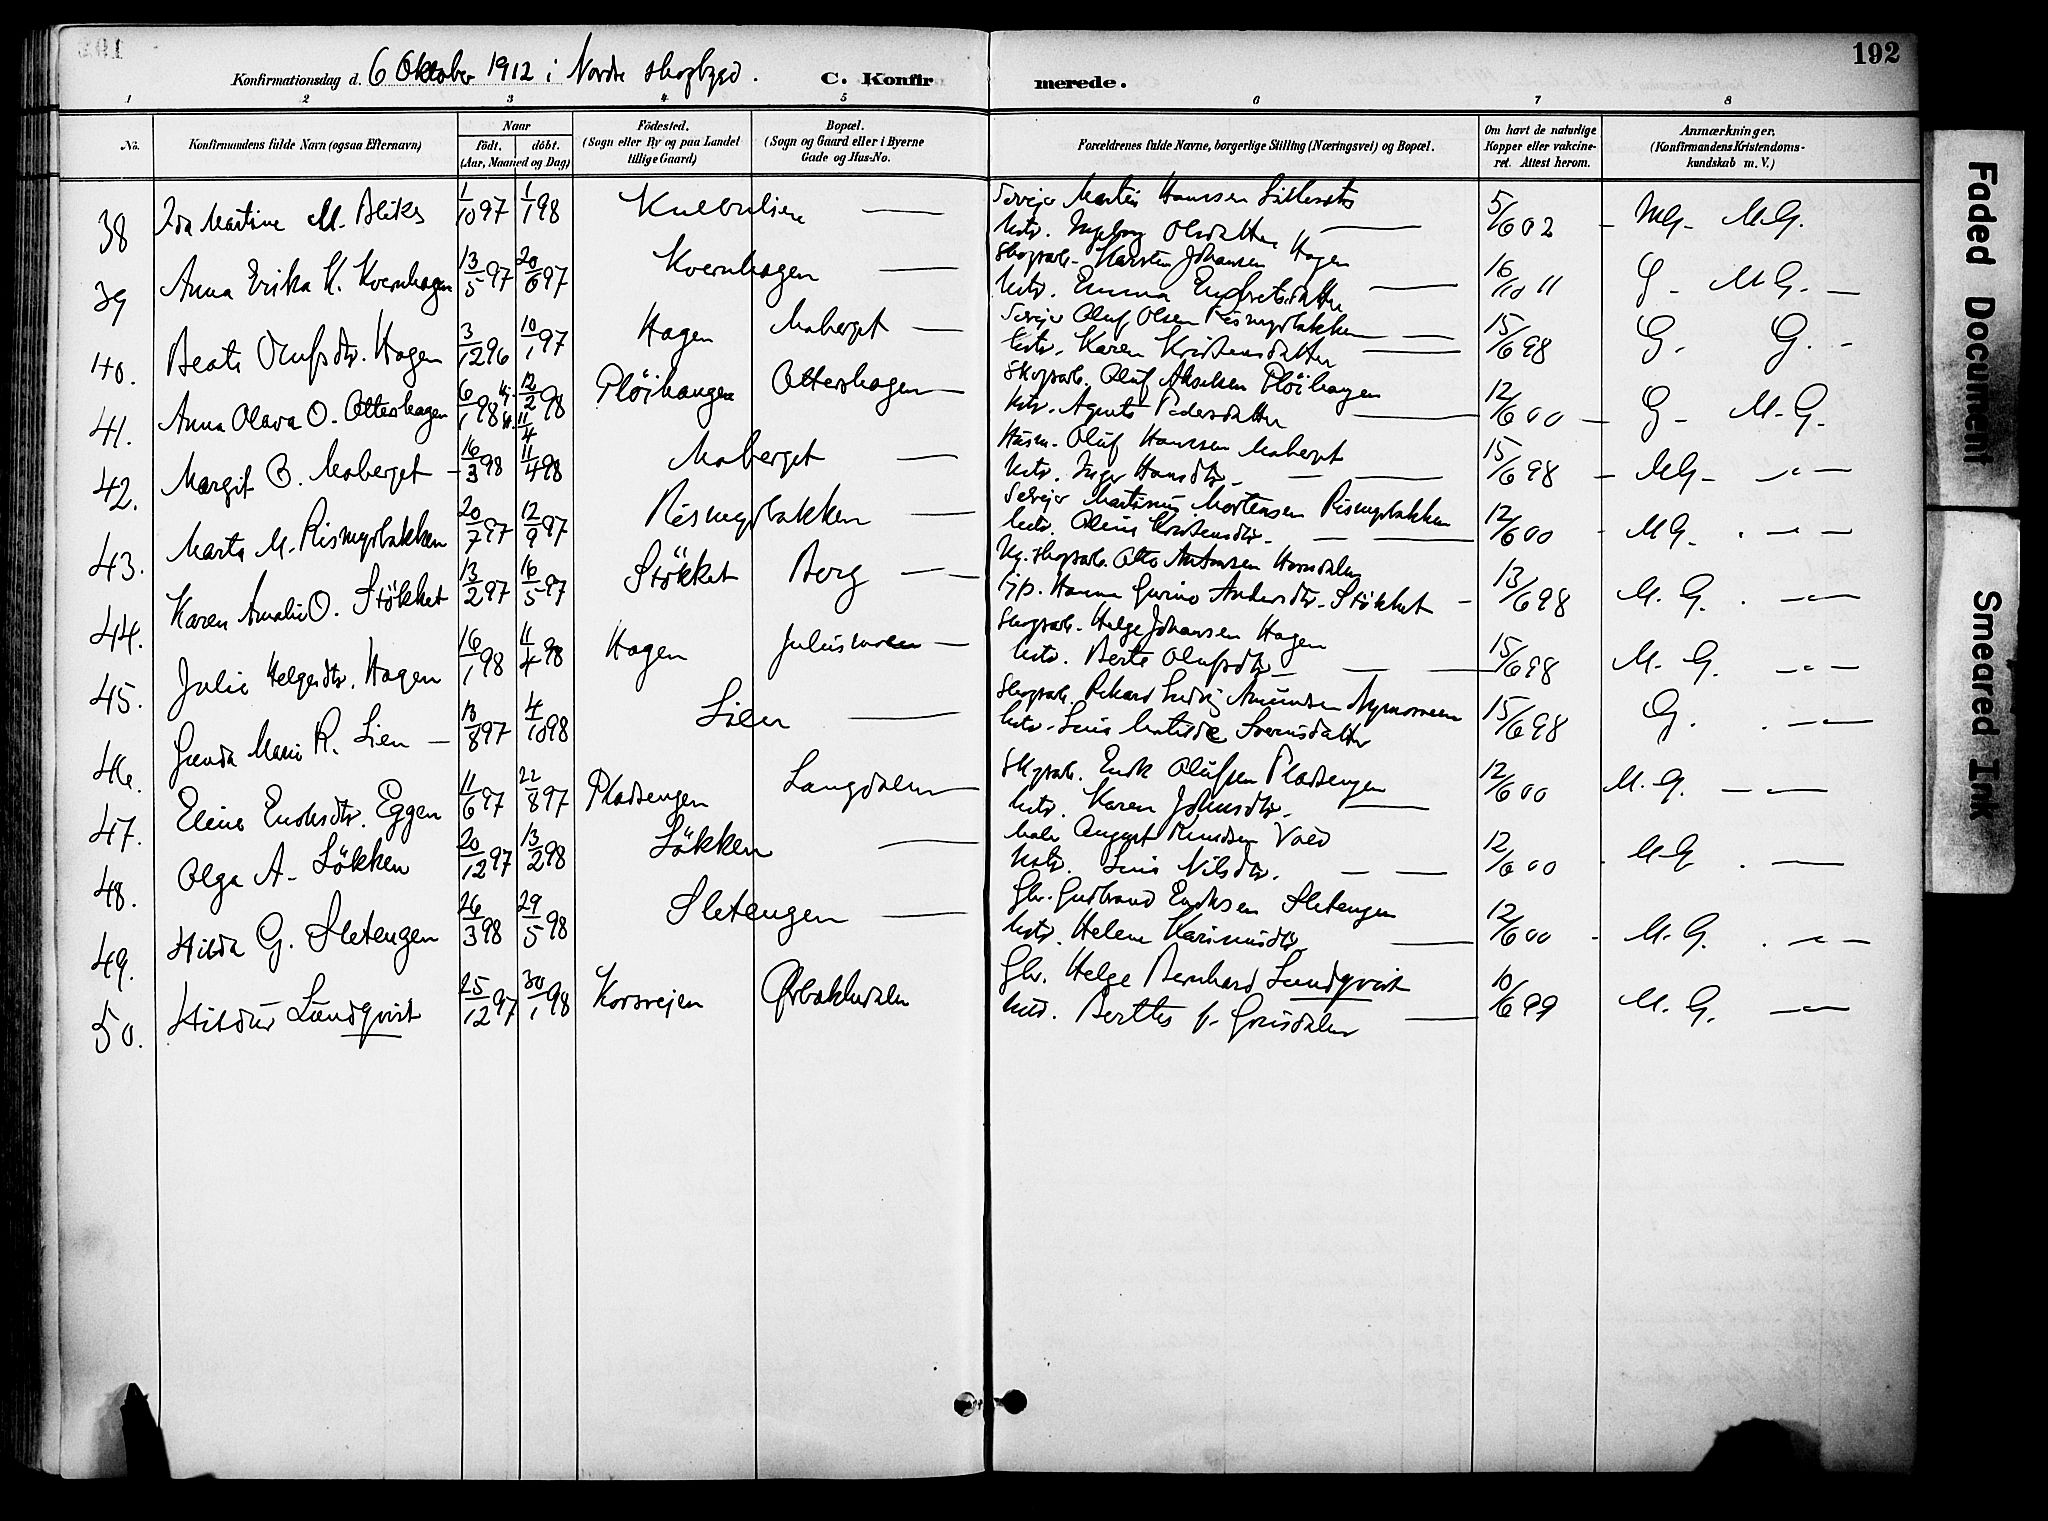 192
Konfirmationsdag d. 6 Oktober 1912 i Nordre skogbygd. C. Konfirmerede.
1 2 3 4 5 6 7 8
No. Konfirmandens fulde Navn (ogsaa Efternavn) Naar födt. döbt. (Aar, Maaned og Dag) Födested. (Sogn eller By og paa Landet tillige Gaard) Bopæl. (Sogn og Gaard eller i Byerne Gade og Hus-No. Forældrenes fulde Navne, borgerlige Stilling (Næringsvei) og Bopæl. Om havt de naturlige Kopper eller vakcineret. Attest herom. Anmærkninger. (Konfirmandens Kristendomskundskab m. V.)
38 Ida Martine M. 1/10 97 1/1 98 — Martin Hanssen 5/6 02 - MG- M.G.
Ingeborg Olsdatter —
39 Anna Erika K. Kvernhagen 13/5 97 20/6 97 Kvernhagen — Skogsarb. Karsten Johansen Hagen 16/10 11 G- M.G. —
Hstr. Emma —
40. Beate Olufsdtr. Hagen 3/12 96 10/1 97 Hagen Moberget — Oluf Olsen Rismyrbakken — 15/6 98 G. G. -
Hstr. Karen Kristensdatter —
41. Anna Olava O. Ottershagen 6/1 98 12/2 98 11/4 Plöihaugen Ottershagen — Skogsarb. Oluf Akselsen Plöihaugen 12/6 00 — G- M.G.
Hstr. Agnete Pedersdatter —
42. Margit O. Moberget - 16/3 98 11/4 98 Moberget — Husm. Oluf Hanssen Moberget 15/6 98 - MG- -"-
Hstr. Inger Hansdtr. — —
43. Marta M. Rismyrbakken 20/7 97 12/9 97 Rismyrbakken — Martinus Mortensen Rismyrbakken 12/6 00 - MG. . - —
Hstr. Oline Kristensdtr. — —
44. Karen Amalie O. Stökket 13/2 97 16/5 97 Stökket Berg — Ug. skogsarb. Otto Antonsen Horndalen 13/6 98 M.G. . -"-
pp. Hanna Gurine Andersdtr. Stökket —
45. Julie Helgesdtr. Hagen 16/1 98 11/4 98 Hagen Julusmoen — Skogsarb. Helge Johansen Hagen 15/6 98 M.G. -"-
Hstr. Berte Olufsdtr. — —
46. Gunda Marie R. Lien — 13/8 97 4/10 98 Lien — Skogsarb. Rikard Ludvig Amundsen Nymoeen 15/6 98 G. . -"-
Hstr. Lina Matilde Svensdatter
47. Eline Eriksdtr. Eggen 11/6 97 22/8 97 Pladsengen Langdalen Skogsarb. Erik Olufsen Pladsengen 12/6 00 M.G. — —
Hstr. Karen Johnsdtr. —
48. Olga A. Lökken 20/12 97 13/2 98 Lökken — August Knudsen Vold 12/6 00 . MG . —
Hstr. Lina Nilsdtr. — —
49. Hilda G. Sletengen 26/3 98 29/5 98 Sletengen — Gbr. Gudbrand Eriksen Sletengen 12/6 00 - M.G. . -"-
Hstr. Helene —
50. Hildur Lundqvist 25/12 97 30/1 98 Korsvejen Ørbækkdalen Gbr. Helge Bernhard Lundqvist 10/6 99 M.G. -"-
Hstr. Berthe f. Grusdalen —
Faded Document
Smeared Ink